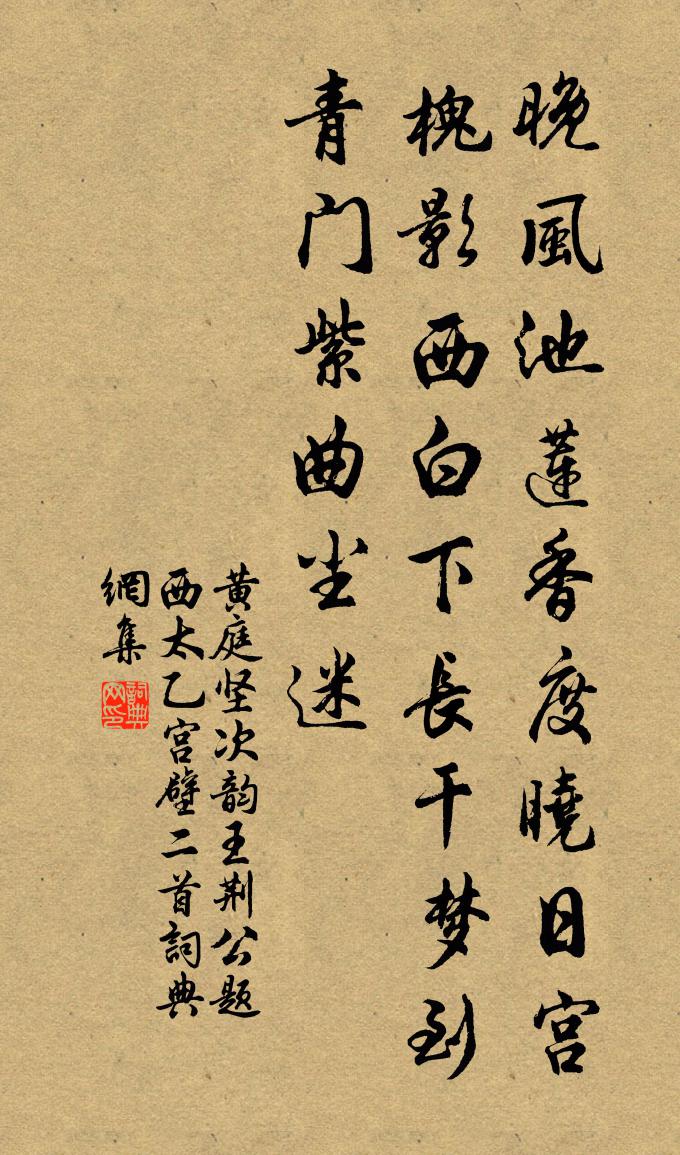 晚風池蓮香度曉日宫
槐影西白下長干梦到
青门紫曲尘迷
黄庭坚次韵王荆公题
西太乙宫壁二首詞典
網集
詞典网印